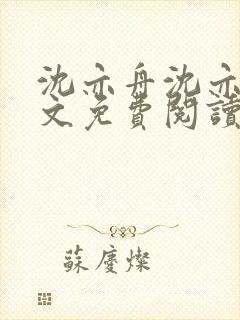 沈亦舟沈亦
文免費閱讀
蘇慶燦